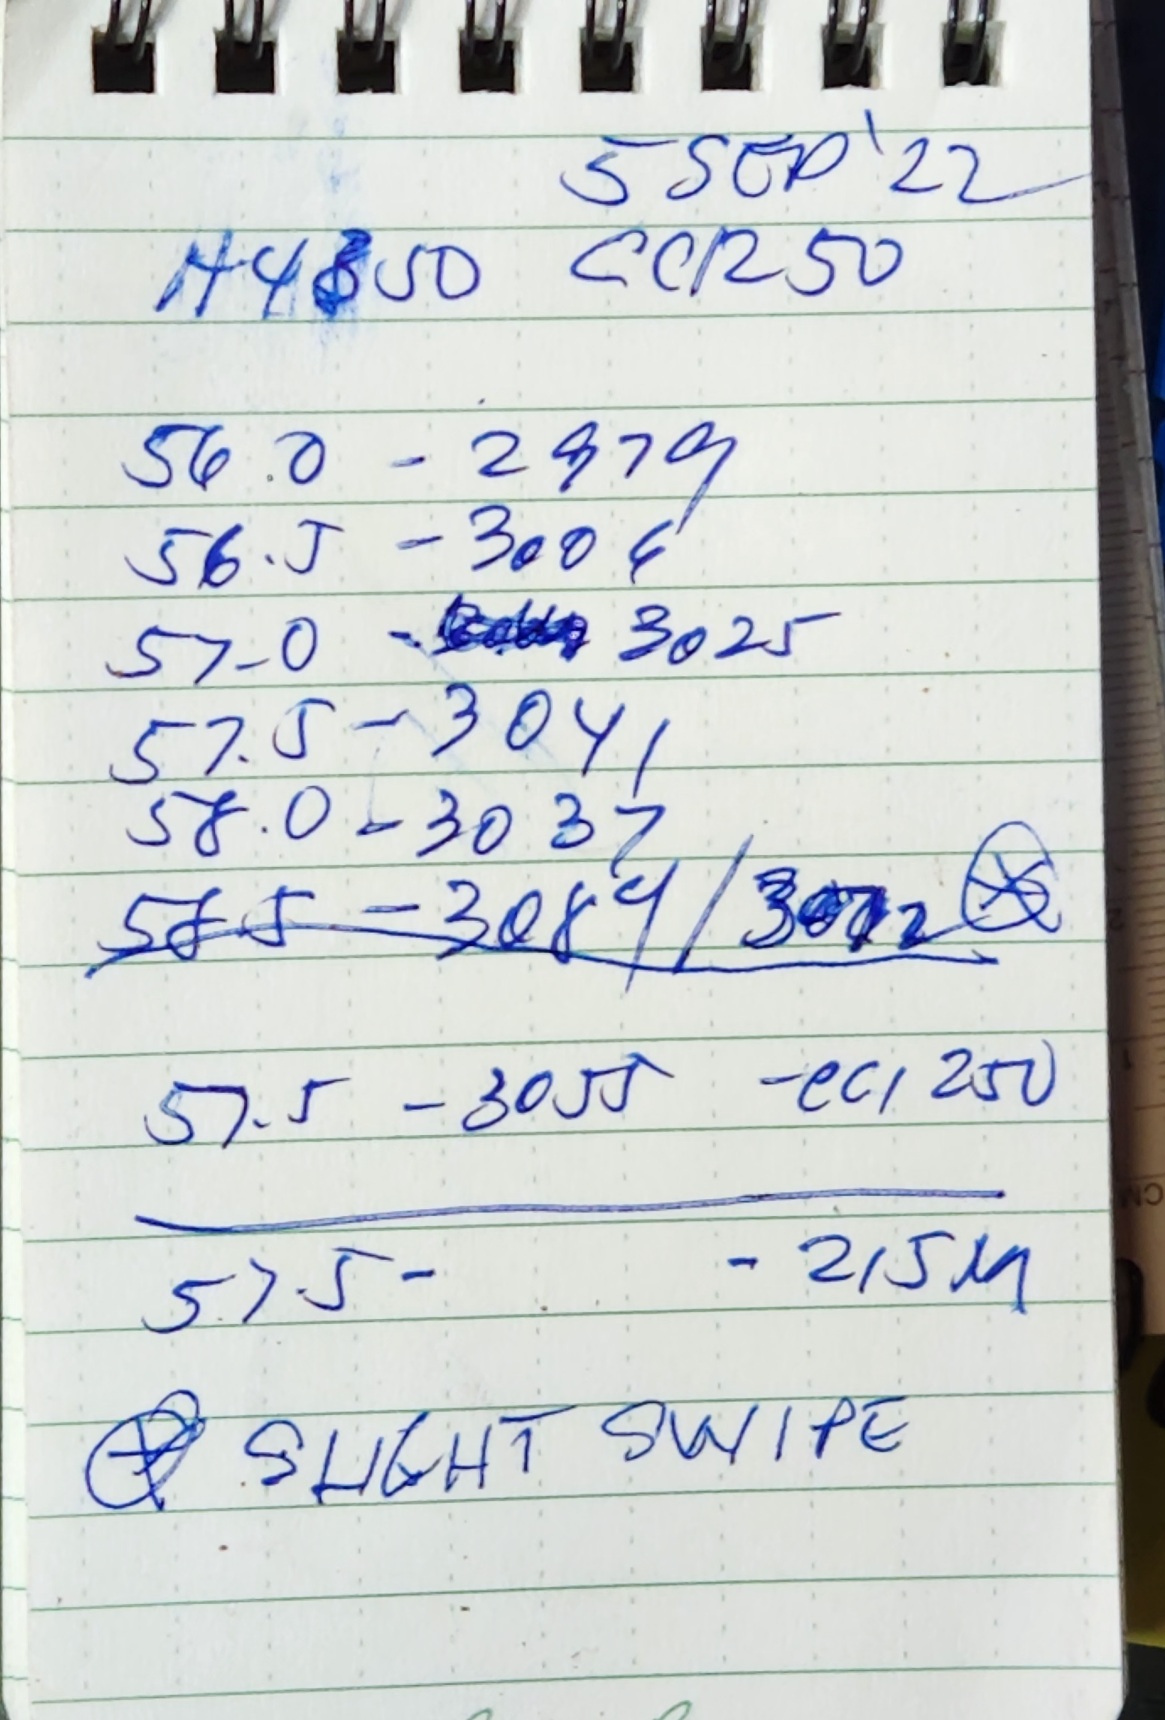 5 SEP '22
H4350 CCI250
56.0 - 2979
56.5 - 3004
57.0 - 3025
57.5 - 3041
58.0 - 3037
58.5 - 3084 /
57.5 - 3055 - CCI 250
57.5 - - 215M
SLIGHT SWIPE